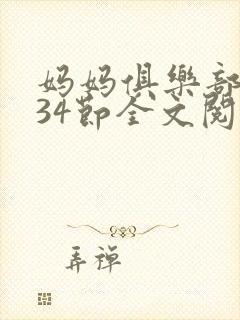 妈妈俱樂部
34節全文閱
弄禅